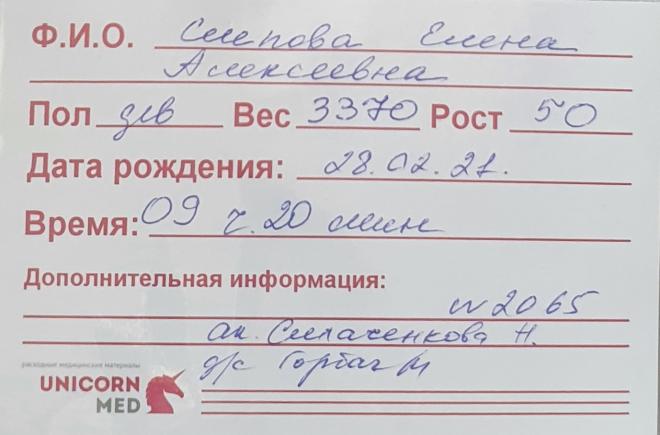 Ф.И.О. Слепова Елена
Алексеевна
Пол дев Вес 3370 Рост 50
Дата рождения: 28.02.21.
Время: 09 ч. 20 мин
Дополнительная информация:
N2065
ак. Силаченкова Н.
д/с Горбач М
расходные медицинские материалы
UNICORN
MED